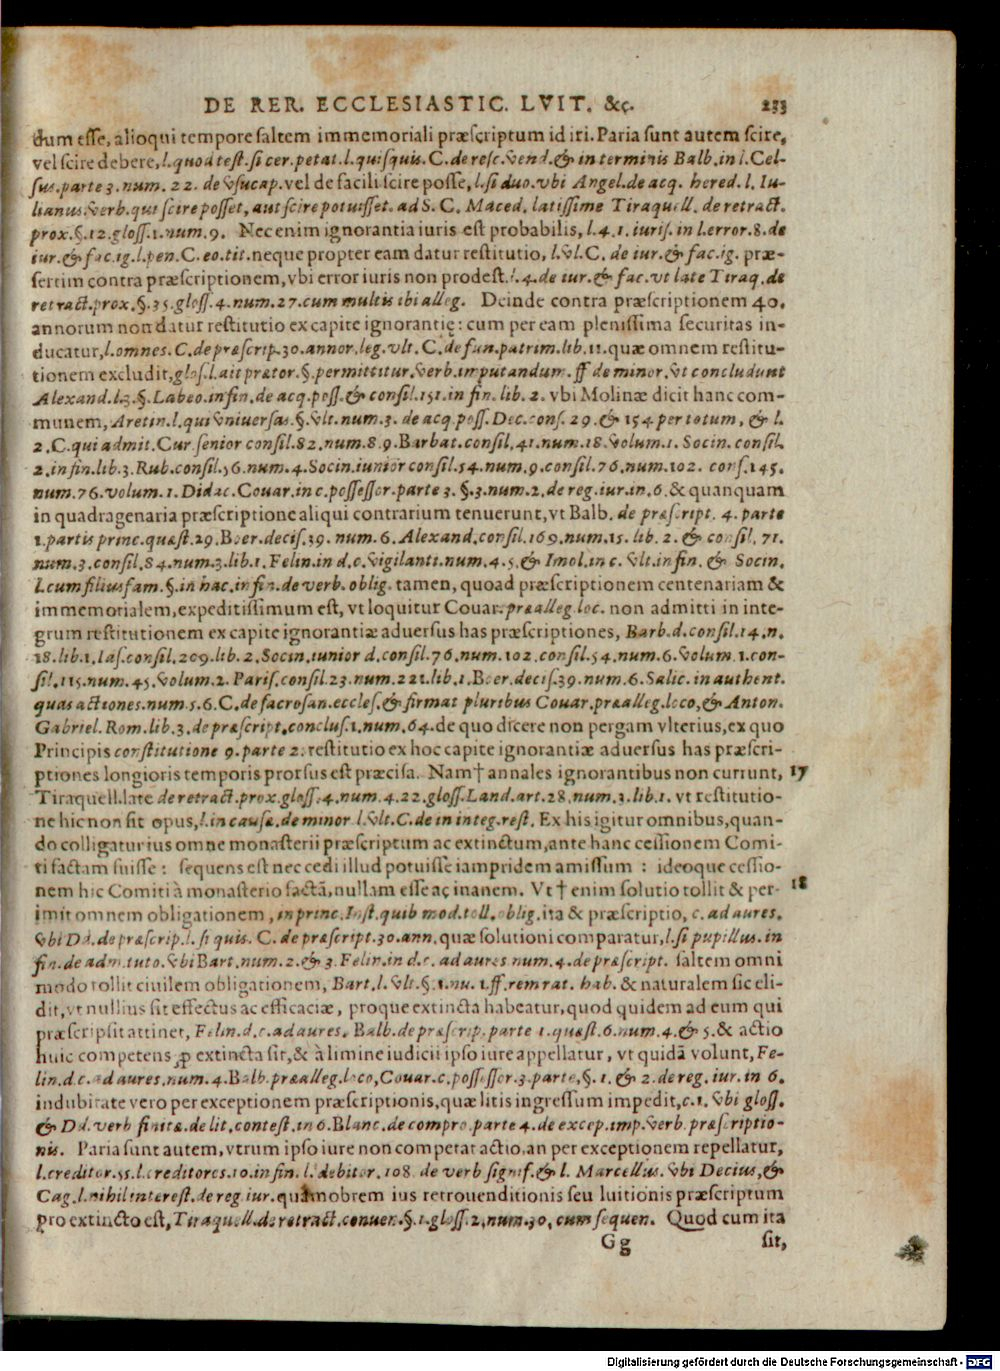 DE RER. ECCLESIASTIC. LVIT. &c. 233
dum esse, alioqui tempore saltem immemoriali præscriptum id iri. Paria sunt autem scire,
vel scire debere, l. quod test. si cer. petat. l. quisquis. C. de resc. vend. & in terminis Balb. in l. Cel-
sus. parte 3. num. 22. de vsucap. vel de facili scire posse, l. si duo. vbi Angel. de acq. hered. l. Iu-
lianus. verb. qui scire posset, aut scire potuisset. ad S. C. Maced. latissime Tiraquell. de retract.
prox. §. 12. gloss. 1. num. 9. Nec enim ignorantia iuris est probabilis, l. 4. 1. iuris. in l. error. 8. de
iur. & fac. ig. l. pen. C. eo. tit. neque propter eam datur restitutio, l. vl. C. de iur. & fac. ig. præ-
sertim contra præscriptionem, vbi error iuris non prodest. l. 4. de iur. & fac. vt late Tiraq. de
retract. prox. §. 35. gloss. 4. num. 27. cum multis ibi alleg. Deinde contra præscriptionem 40.
annorum non datur restitutio ex capite ignorantię: cum per eam plenissima securitas in-
ducatur, l. omnes. C. de præscrip. 30. annor. leg. vlt. C. de fun. patrim. lib. 11. quæ omnem restitu-
tionem excludit, glos. l. ait prætor. §. permittitur. verb. imputandum. ff de minor. vt concludunt
Alexand. l. 3. §. Labeo. in fin. de acq. poss. & consil. 151. in fin. lib. 2. vbi Molinæ dicit hanc com-
munem, Aretin. l. qui vniuersas. §. vlt. num. 3. de acq. poss. Dec. cons. 29. & 154. per totum, & l.
2. C. qui admit. Cur. senior consil. 82. num. 8. 9. Barbat. consil. 41. num. 18. volum. 1. Socin. consil.
2. in fin. lib. 3. Rub. consil. 56. num. 4. Socin. iunior consil. 54. num. 9. consil. 76. num. 102. cons. 145.
num. 76. volum. 1. Didac. Couar. in c. possessor. parte 3. §. 3. num. 2. de reg. iur. in. 6. & quanquam
in quadragenaria præscriptione aliqui contrarium tenuerunt, vt Balb. de præscript. 4. parte
1. partis princ. quæst. 29. Boer. decis. 39. num. 6. Alexand. consil. 169. num. 15. lib. 2. & consil. 71.
num. 3. consil. 84. num. 3. lib. 1. Felin. in d. c. vigilanti. num. 4. 5. & Imol. in c. vlt. in fin. & Socin.
l. cum filiusfam. §. in hac. in fin. de verb. oblig. tamen, quoad præscriptionem centenariam &
immemorialem, expeditissimum est, vt loquitur Couar. præalleg. loc. non admitti in inte-
grum restitutionem ex capite ignorantiæ aduersus has præscriptiones, Barb. d. consil. 14. n.
18. lib. 1. Ias. consil. 209. lib. 2. Socin. iunior d. consil. 76. num. 102. consil. 54. num. 6. volum. 1. con-
sil. 115. num. 45. volum. 2. Paris. consil. 23. num. 221. lib. 1. Boer. decis. 39. num. 6. Salic. in authent.
quas actiones. num. 5. 6. C. de sacrosan. eccles. & firmat pluribus Couar. præalleg. loco, & Anton.
Gabriel. Rom. lib. 3. de præscript. conclus. 1. num. 64. de quo dicere non pergam vlterius, ex quo
Principis constitutione 9. parte 2. restitutio ex hoc capite ignorantiæ aduersus has præscri-
ptiones longioris temporis prorsus est præcisa. Nam † annales ignorantibus non currunt, 17
Tiraquell. late de retract. prox. gloss. 4. num. 4. 22. gloss. Land. art. 28. num. 3. lib. 1. vt restitutio-
ne hic non sit opus, l. in causæ. de minor l. vlt. C. de in integ. rest. Ex his igitur omnibus, quan-
do colligatur ius omne monasterii præscriptum ac extinctum, ante hanc cessionem Comi-
ti factam fuisse: sequens est nec cedi illud potuisse iampridem amissum: ideoque cessio-
nem hic Comiti à monasterio factã, nullam esse ac inanem. Vt † enim solutio tollit & per- 18
imit omnem obligationem, in princ. Inst. quib mod. toll. oblig. ita & præscriptio, c. ad aures.
vbi Dd. de præscrip. l. si quis. C. de præscript. 30. ann. quæ solutioni comparatur, l. si pupillus. in
fin. de adm. tuto. vbi Bart. num. 2. & 3. Felin. in d. c. ad aures num. 4. de præscript. saltem omni
modo tollit ciuilem obligationem, Bart. l. vlt. §. 1. nu. 1. ff. rem rat. hab. & naturalem sic eli-
dit, vt nullius sit effectus ac efficaciæ, proque extincta habeatur, quod quidem ad eum qui
præscripsit attinet, Felin. d. c. ad aures. Balb. de præscrip. parte 1. quæst. 6. num. 4. & 5. & actio
huic competens ꝓ extincta sit, & à limine iudicii ipso iure appellatur, vt quidã volunt, Fe-
lin. d. c. ad aures. num. 4. Balb. præalleg. loco, Couar. c. possessor. 3. parte, §. 1. & 2. de reg. iur. in 6.
indubitate vero per exceptionem præscriptionis, quæ litis ingressum impedit, c. 1. vbi gloss.
& Dd. verb finitæ. de lit. contest. in 6. Blanc. de compro. parte 4. de excep. imp. verb. præscriptio-
nis. Paria sunt autem, vtrum ipso iure non competat actio, an per exceptionem repellatur,
l. creditor. 55. l. creditores. 10. in fin. l. debitor. 108. de verb signif. & l. Marcellus. vbi Decius, &
Cag. l. nihil interest. de reg. iur. quamobrem ius retrouenditionis seu luitionis præscriptum
pro extincto est, Tiraquell. de retract. conuen. §. 1. gloss. 2. num. 30. cum sequen. Quod cum ita
Gg sit,
Digitalisierung gefördert durch die Deutsche Forschungsgemeinschaft - DFG